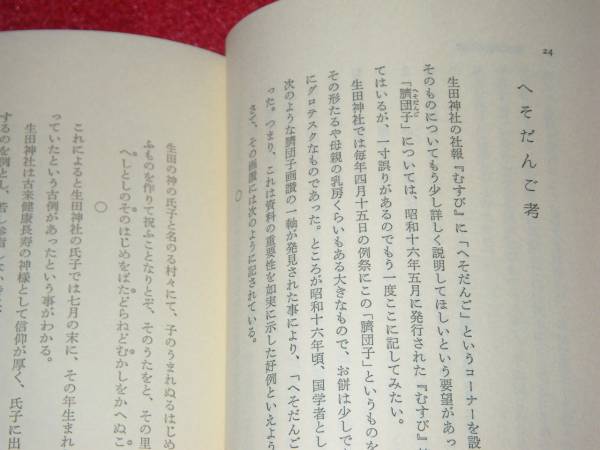 24
へそだんご考
生田神社の社報『むすび』に「へそだんご」というコーナーを設
そのものについてもう少し詳しく説明してほしいという要望があっ
「臍団子」については、昭和十六年五月に発行された『むすび』
へそだんご
てはいるが、一寸誤りがあるのでもう一度ここに記してみたい。
生田神社では毎年四月十五日の例祭にこの「臍団子」というものを
その形たるや母親の乳房くらいもある大きなもので、お餅は少しで
にグロテスクなものであった。ところが昭和十六年頃、国学者とし
次のような臍団子画讃の一軸が発見された事により、「へそだんご
った。つまり、これは資料の重要性を如実に示した好例といえよう
さて、その画讃には次のように記されている。
○
生田の神の氏子と名のる村々にて、子のうまれぬるはじめ
ふものを作りて祝ふことなりとぞ、そのうたをと、その里
へしとしのそのはじめをばたどらねどむかしをかへぬこ
○
これによると生田神社の氏子では七月の末に、その年生まれ
っていたという古例があったという事がわかる。
生田神社は古来健康長寿の神様として信仰が厚く、氏子に出
するのを例とし、若し参